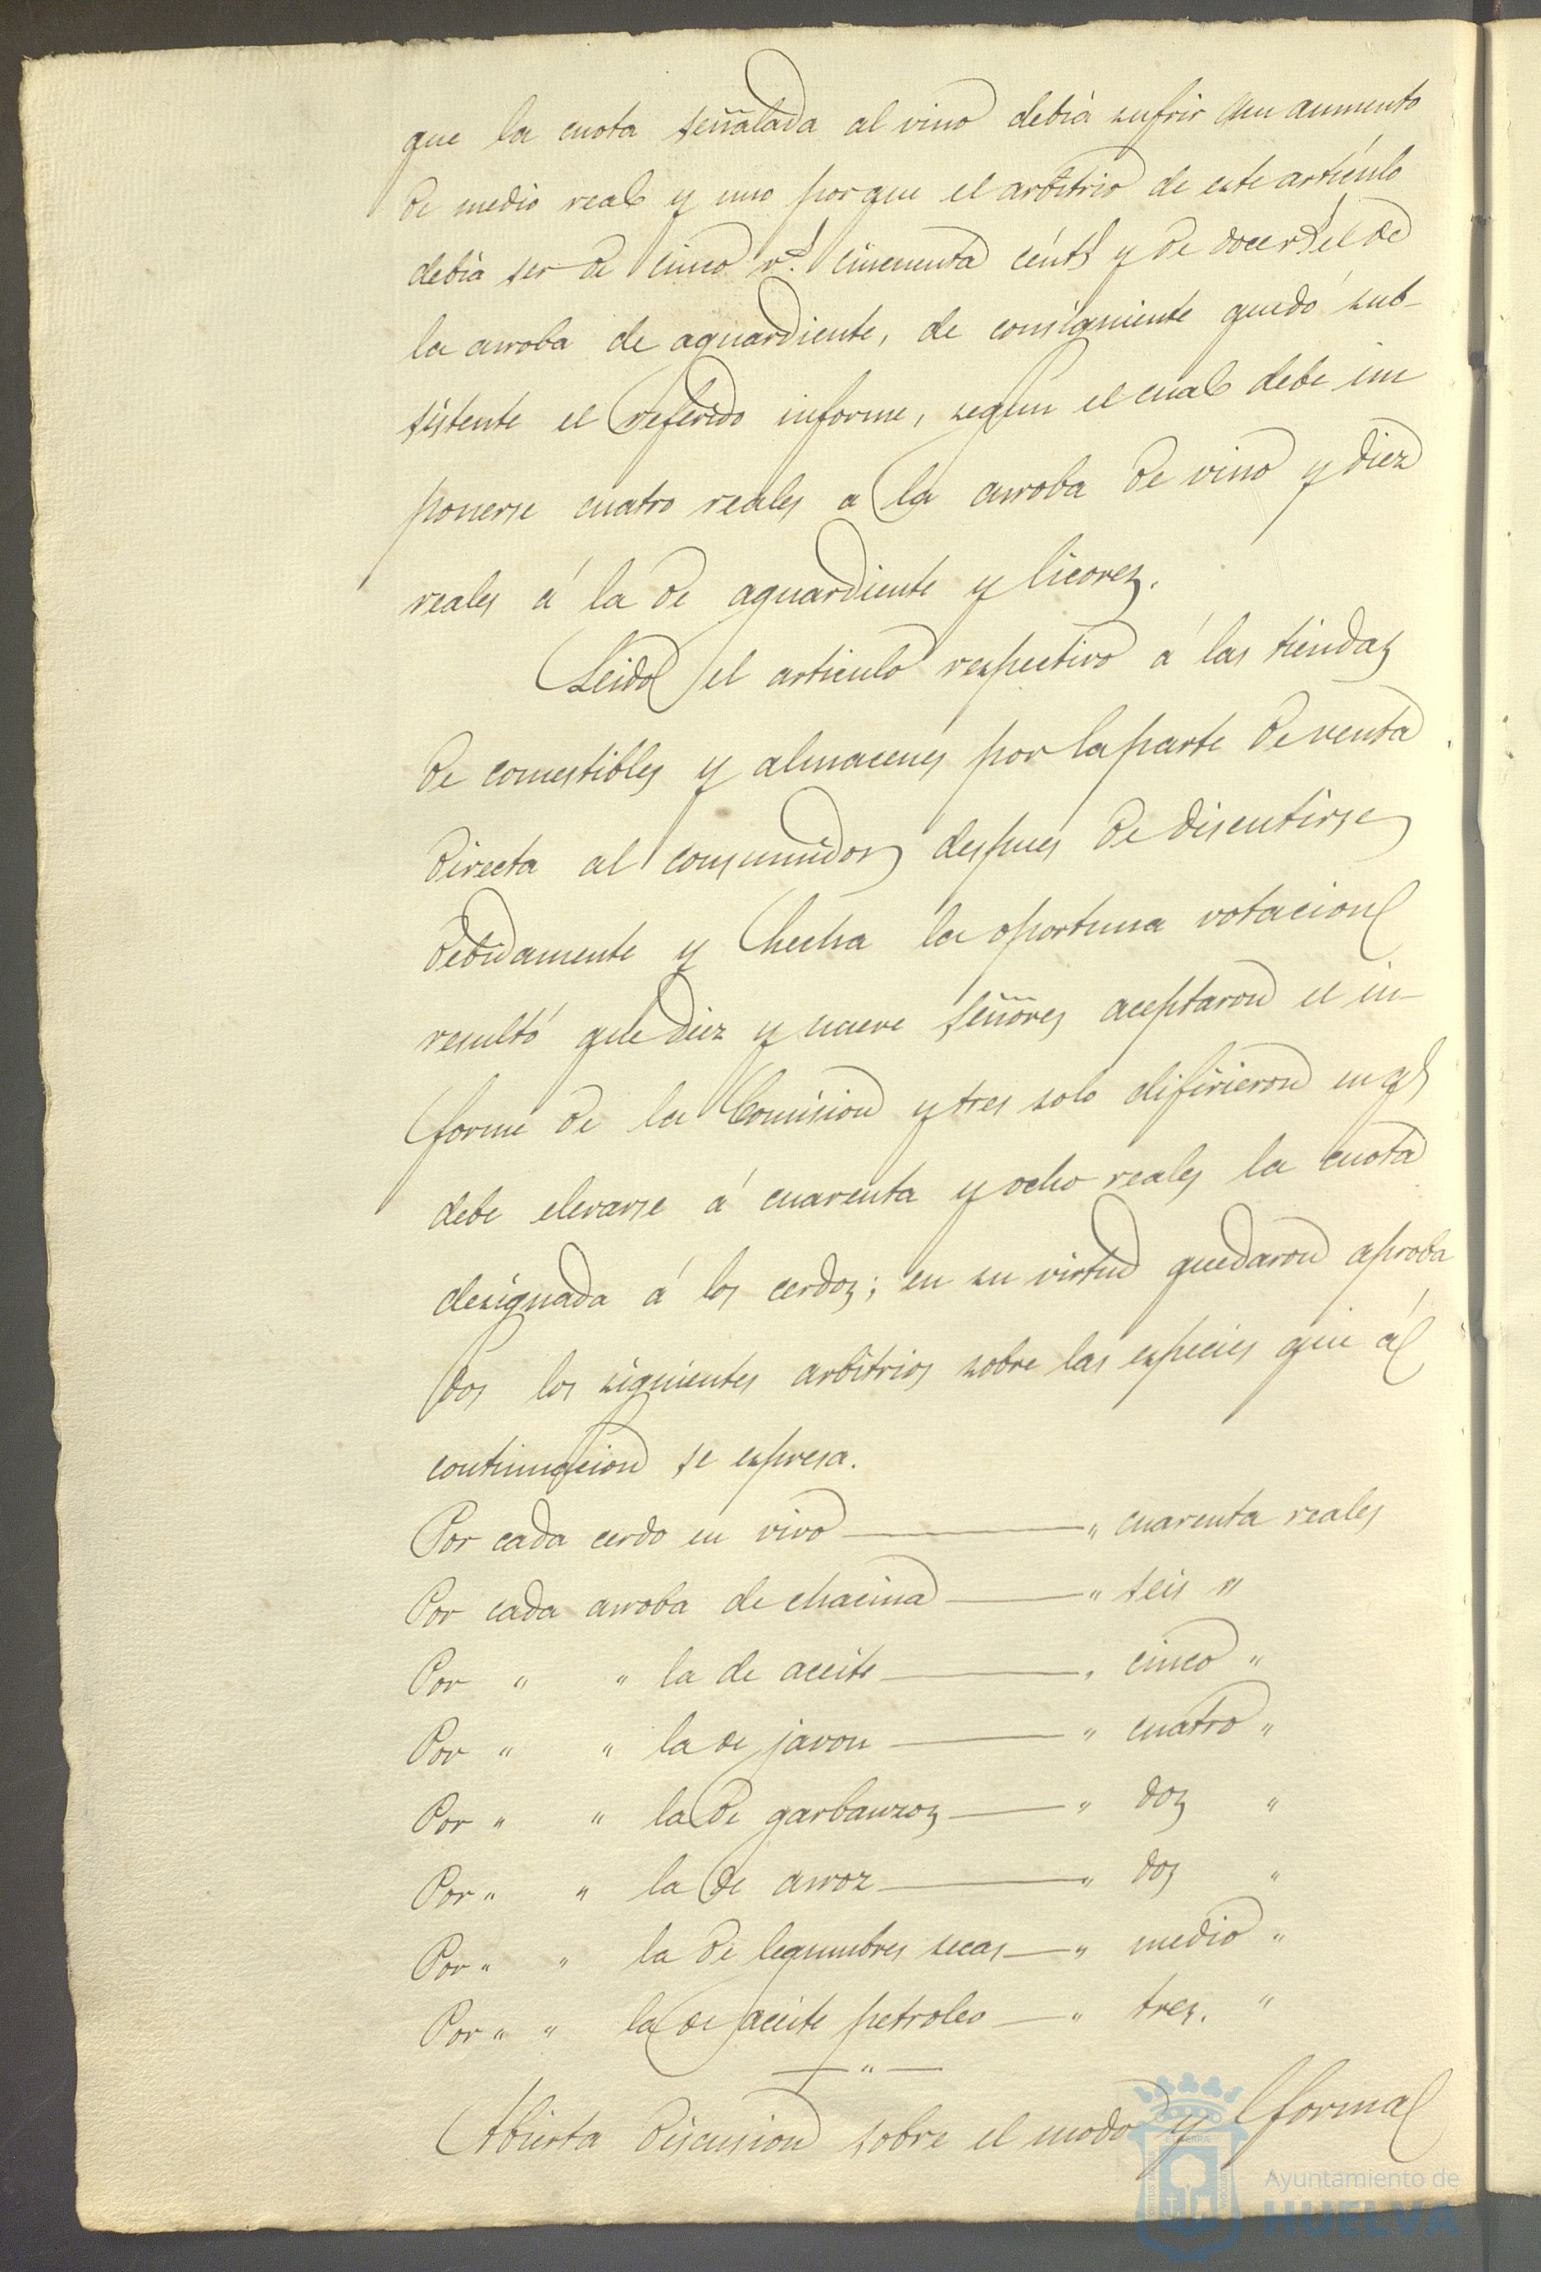 que la cuota señalada al vino debia sufrir un aumento
de medio real y uno porque el arbitrio de este artículo
debia ser de cinco rs. cincuenta cénts y de doce rs el de
la arroba de aguardiente, de consiguiente quedó sub-
sistente el referido informe, segun el cual debe im
ponerse cuatro reales a la arroba de vino y diez
reales á la de aguardiente y licores.
Leido el articulo respectivo á las tiendas
de comestibles y almacenes por la parte de venta
directa al consumidor despues de discutirse
debidamente y hecha la oportuna votacion
resultó que diez y nueve señores aceptaron el in-
forme de la Comision y tres solo difirieron en qe
debe elevarse á cuarenta y ocho reales la cuota
designada á los cerdos; en su virtud quedaron aproba
dos los siguientes arbitrios sobre las especies que á
continuacion se espresa.
Por cada cerdo en vivo — " cuarenta reales
Por cada arroba de chacina — " seis "
Por " " la de aceite — " cinco "
Por " " la de javon — " cuatro "
Por " " la de garbanzos — " dos "
Por " " la de arroz — " dos "
Por " " la de legumbres secas — " medio "
Por " " la de aceite petroleo — " tres. "
— " —
Abierta discusion sobre el modo y forma
Ayuntamiento de
HUELVA